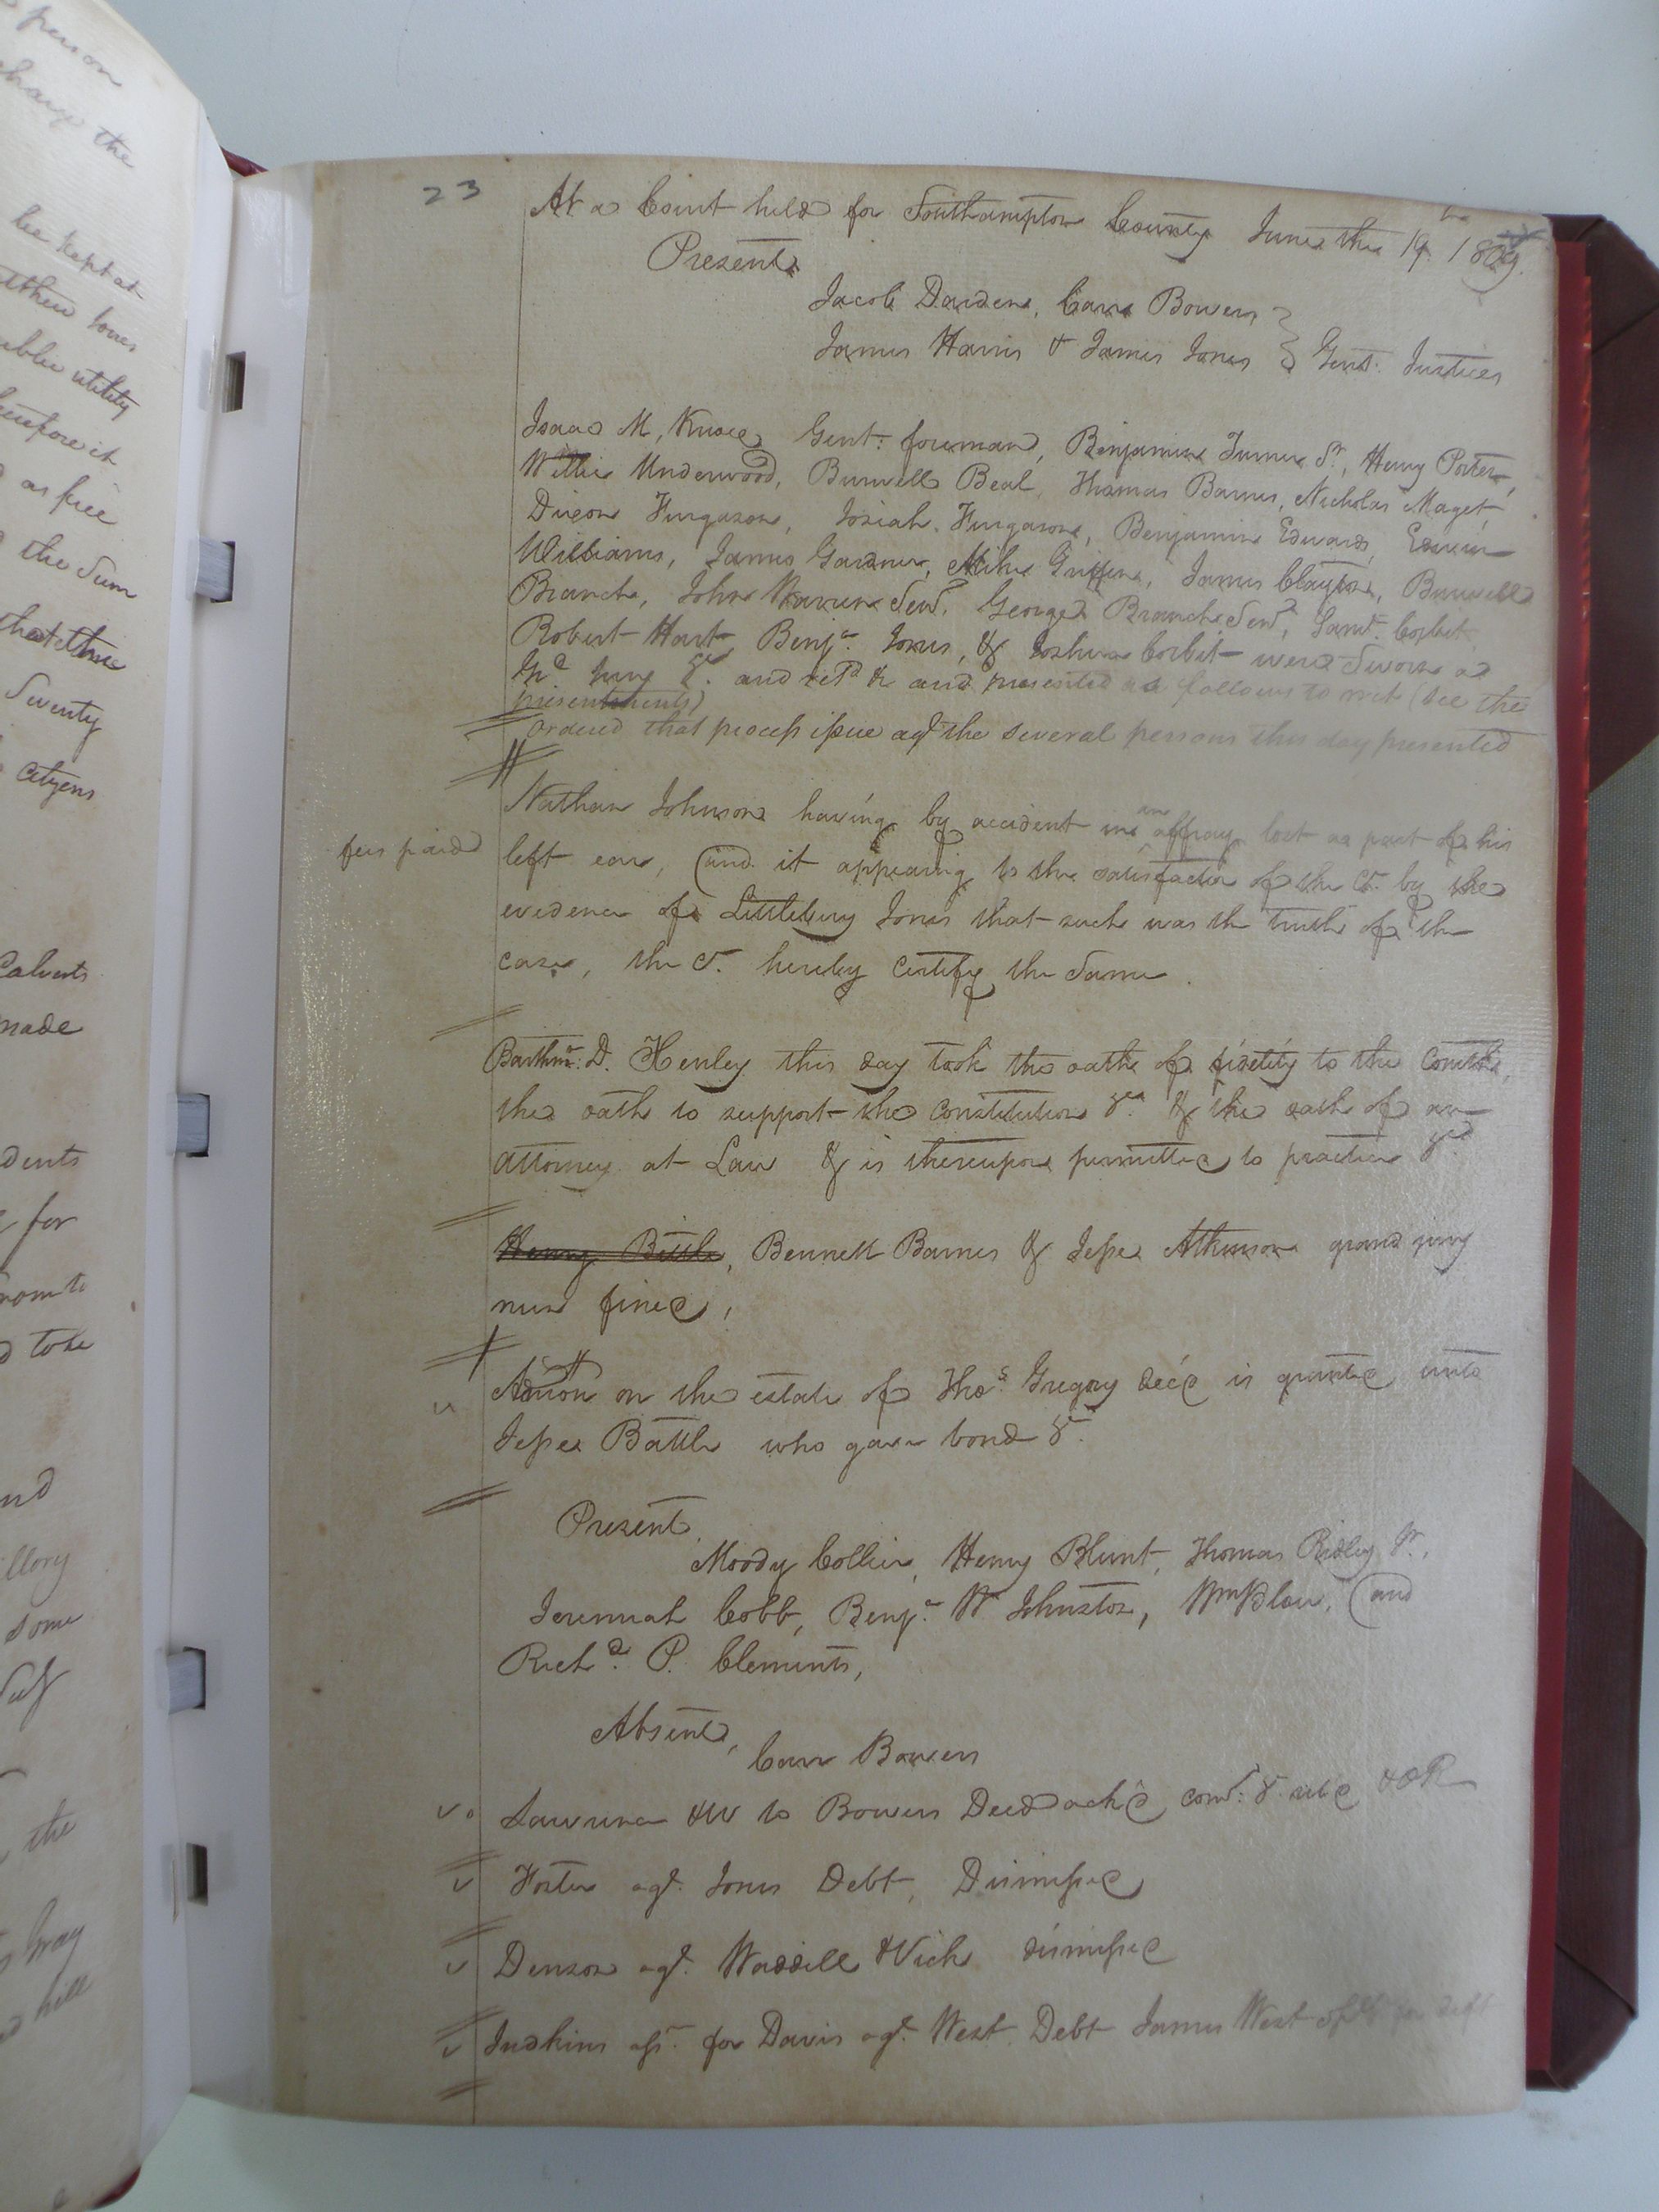 person
charge the
be kept at
public utility
as free
the Sum
that the
Seventy
Citizens
Calverts
made
for
some
the
hill
23
At a Court held for Southampton County June the 19th 1809.
Present
Jacob Darden, Carr Bowers
James Harris & James Jones } Gent: Justices
Isaac M, Gent: foreman, Benjamin Turner Sr, Henry Porter,
Willie Underwood, Burwell Beal, Thomas Barnes, Nicholas Maget,
Dixon Furgason, Josiah Furgason, Benjamin Edwards, Edwin
Williams, James Gardner, Griffin, James Clayton, Burwell
Branch, John Senr, George Branch Senr, Saml. Corbit
Robert Hart, Benja. Jones, & Joshua Corbit were Sworn as
Gd Jury &c. and retd & and presented as follows to wit (see the
presentments)
Ordered that process issue agt the several persons this day presented
Nathan Johnson having by accident in an affray lost a part of his
fees paid
left ear, and it appearing to the satisfaction of the Ct. by the
evidence of Littlebury Jones that such was the truth of the
case, the Ct. hereby Certify the Same.
Barthw: D. Henley this day took the oath of fidelity to the Comth,
the oath to support the Constitution &ca & the oath of an
Attorney at Law & is thereupon permitted to practice &ca
Henry Bittle, Bennett Barnes & Jesse Atkinson grand jury
men fined,
Admon on the estate of Thos. Gregory decd is granted unto
Jesse Battle who gave bond &c.
Present
Moody Collier, Henry Blunt, Thomas Ridley Jr.,
Jeremiah Cobb, Benja. W Johnston, Wm Blow, and
Richd. P. Clements,
Absent,
Carr Bowers
Lawrence &W to Bowers Deed ackd & OR
Foster agt. Jones Debt, Dismissed
Denson agt. Waddill & Vick dismissed
Judkins ass. for Davis agt. West Debt James West for deft